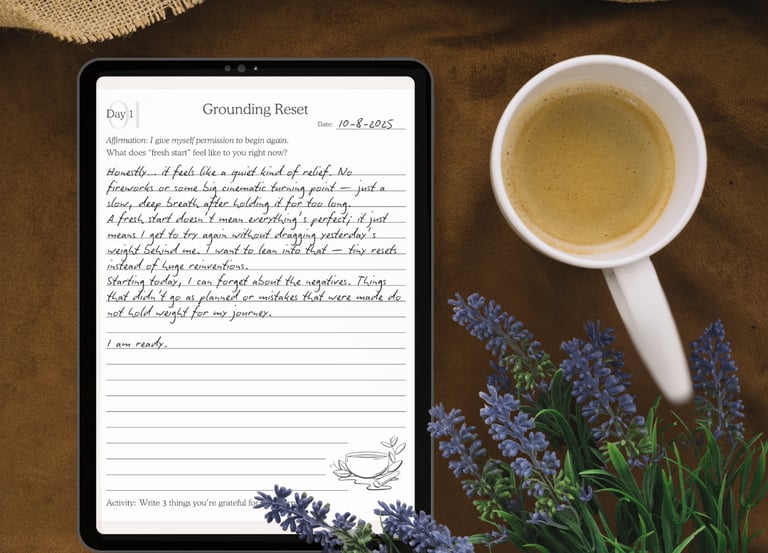 Day 1
01
Grounding Reset
Date: 10-8-2025
Affirmation: I give myself permission to begin again.
What does "fresh start" feel like to you right now?
Honestly... it feels like a quiet kind of relief. No
fireworks or some big cinematic turning point — just a
slow, deep breath after holding it for too long.
A fresh start doesn't mean everything's perfect; it just
means I get to try again without dragging yesterday's
weight behind me. I want to lean into that — tiny resets
instead of huge reinventions.
Starting today, I can forget about the negatives. Things
that didn't go as planned or mistakes that were made do
not hold weight for my journey.
I am ready.
Activity: Write 3 things you're grateful for